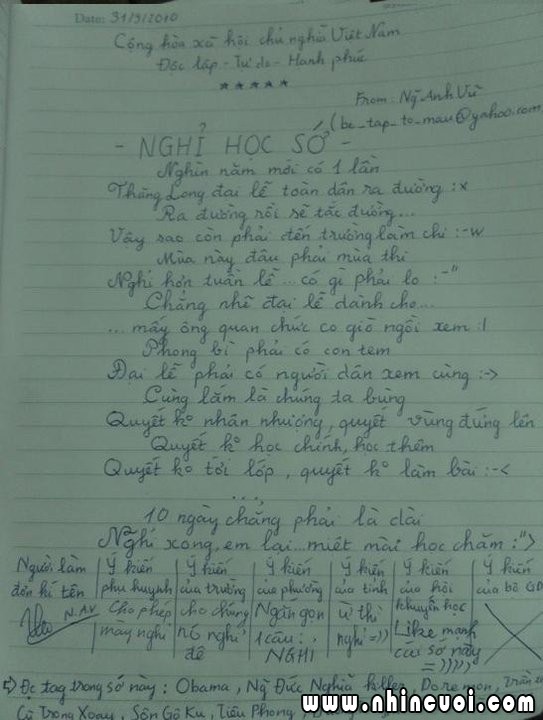 Date: 31/9/2010
Cộng hòa xã hội chủ nghĩa Việt Nam
Độc lập - Tự do - Hạnh phúc
★★★★★
From: Ng̃ Anh Vũ
(be_tap_to_mau@yahoo.com
- NGHỈ HỌC SỚ -
Nghìn năm mới có 1 lần
Thăng Long đại lễ toàn dân ra đường :x
Ra đường rồi sẽ tắc đường...
Vậy sao còn phải đến trường làm chi :-w
Mùa này đâu phải mùa thi
Nghỉ hơn tuần lễ... có gì phải lo :-"
Chẳng nhẽ đại lễ dành cho...
... mấy ông quan chức co giò ngồi xem :|
Phong bì phải có con tem
Đại lễ phải có người dân xem cùng :->
Cùng lắm là chúng ta bùng
Quyết ko nhân nhượng, quyết vùng đứng lên
Quyết ko học chính, học thêm
Quyết ko tới lớp, quyết ko làm bài :-<
...,
10 ngày chẳng phải là dài
Nghỉ xong, em lại... miệt mài học chăm :">
Người làm đơn kí tên N.AV
Ý kiến phụ huynh Cho phép mày nghỉ
Ý kiến của trường cho chúng nó nghỉ đê
Ý kiến của phường Ngắn gọn 1 câu: NGHỈ
Ý kiến của tỉnh ừ thì nghỉ =))
Ý kiến của hội khuyến học Like mạnh cái sớ này =)))))
Ý kiến của bộ GD
Đc tag trong sớ này: Obama, Ng̃ Đức Nghĩa killer, Doremon, Trần
Cù Trọng Xoay, Sôn Gô Ku, Tiêu Phong,
www.nhincuoi.com